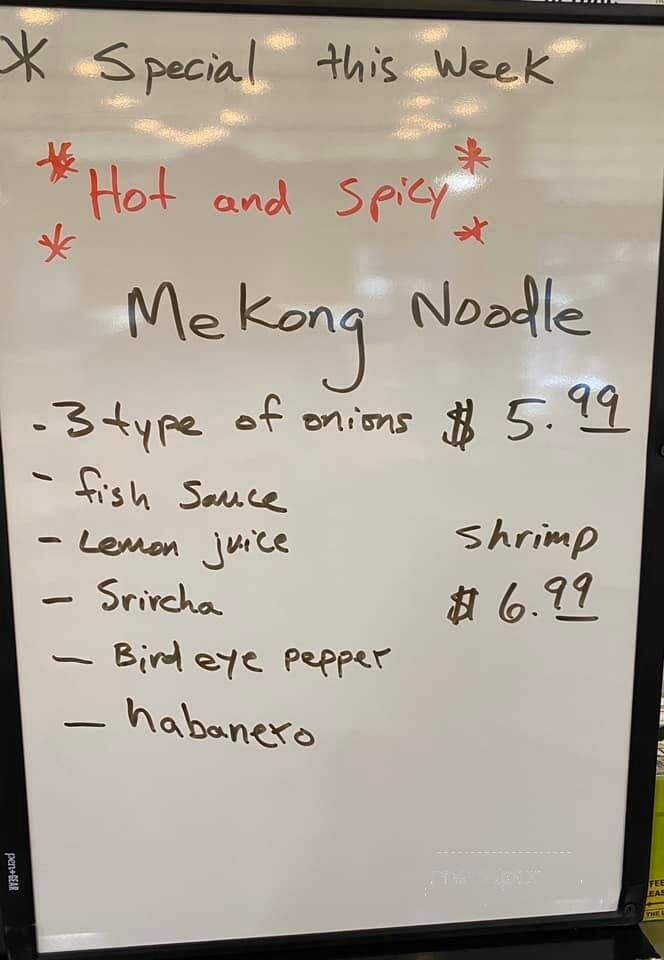 * Special this Week
* Hot and Spicy *
* *
Mekong Noodle
- 3 type of onions $ 5.99
- fish Sauce
- Lemon juice
shrimp
- Srircha
$ 6.99
- Bird eye pepper
- habanero
pen+GEAR